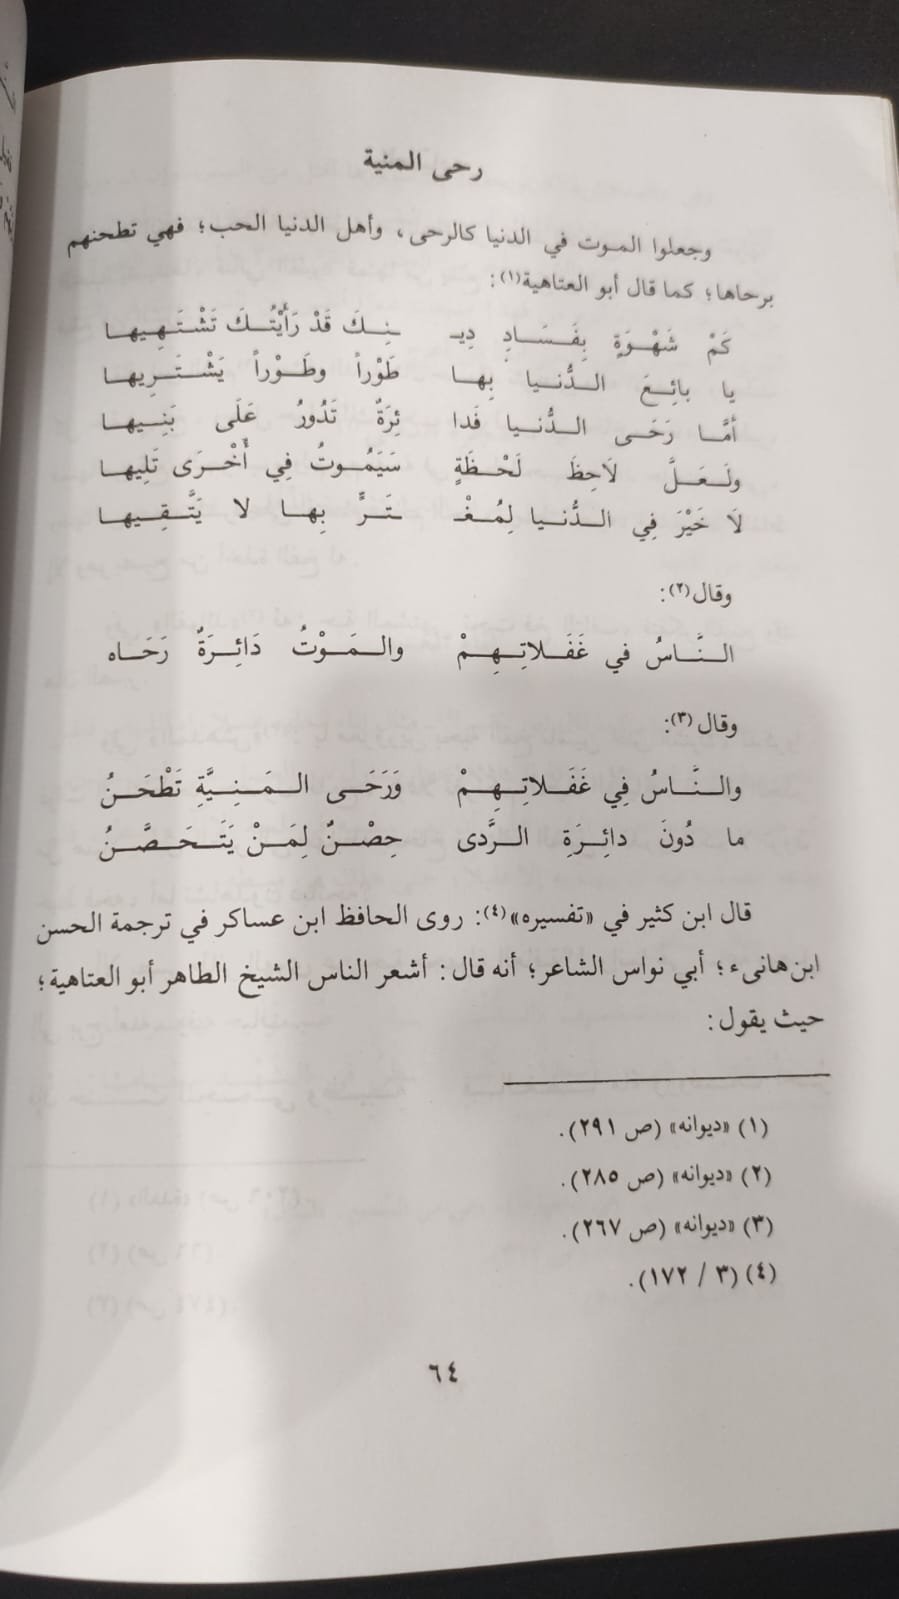 رحى المنية
وجعلوا الموت في الدنيا كالرحى، وأهل الدنيا الحب؛ فهي تطحنهم
برحاها؛ كما قال أبو العتاهية(١):
كَمْ شَهْوَةٍ بِفَسَادِ دِيـ ـنِـكَ قَدْ رَأَيْتُـكَ تَشْتَهِيهـا
يا بائِـعَ الـدُّنـيـا بِهـا طَوْراً وطَـوْراً يَشْتَـرِيهـا
أمَّـا رَحَـى الـدُّنـيـا فَدا ئِرَةٌ تَدُورُ عَلَى بَنِـيهـا
ولَـعَـلَّ لاَحِظَ لَحْـظَةٍ سَيَمُـوتُ فِي أُخْـرَى تَلِيهـا
لاَ خَيْرَ فِي الـدُّنـيـا لِمُغْـ ـتَـرٍّ بِهـا لا يَتَّـقِـيهـا
وقال(٢):
الـنَّـاسُ في غَفَـلاتِـهِـمْ والـمَـوْتُ دَائِـرَةٌ رَحَـاه
وقال(٣):
والـنَّـاسُ فِي غَفَـلاتِـهِـمْ وَرَحَـى الـمَـنِيَّةِ تَطْحَـنُ
ما دُونَ دائِـرَةِ الـرَّدى حِصْـنٌ لِمَـنْ يَتَـحَـصَّـنُ
قال ابن كثير في «تفسيره»(٤): روى الحافظ ابن عساكر في ترجمة الحسن
ابن هانىء؛ أبي نواس الشاعر؛ أنه قال: أشعر الناس الشيخ الطاهر أبو العتاهية؛
حيث يقول:
(١) «ديوانه» (ص ٢٩١).
(٢) «ديوانه» (ص ٢٨٥).
(٣) «ديوانه» (ص ٢٦٧).
(٤) (٣ / ١٧٢).
٦٤